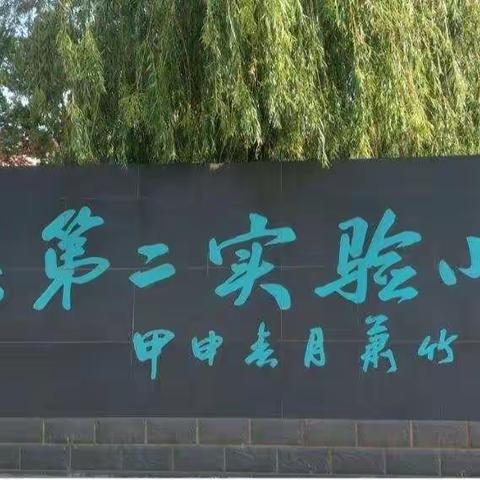 第二实验小
甲申春月萧竹